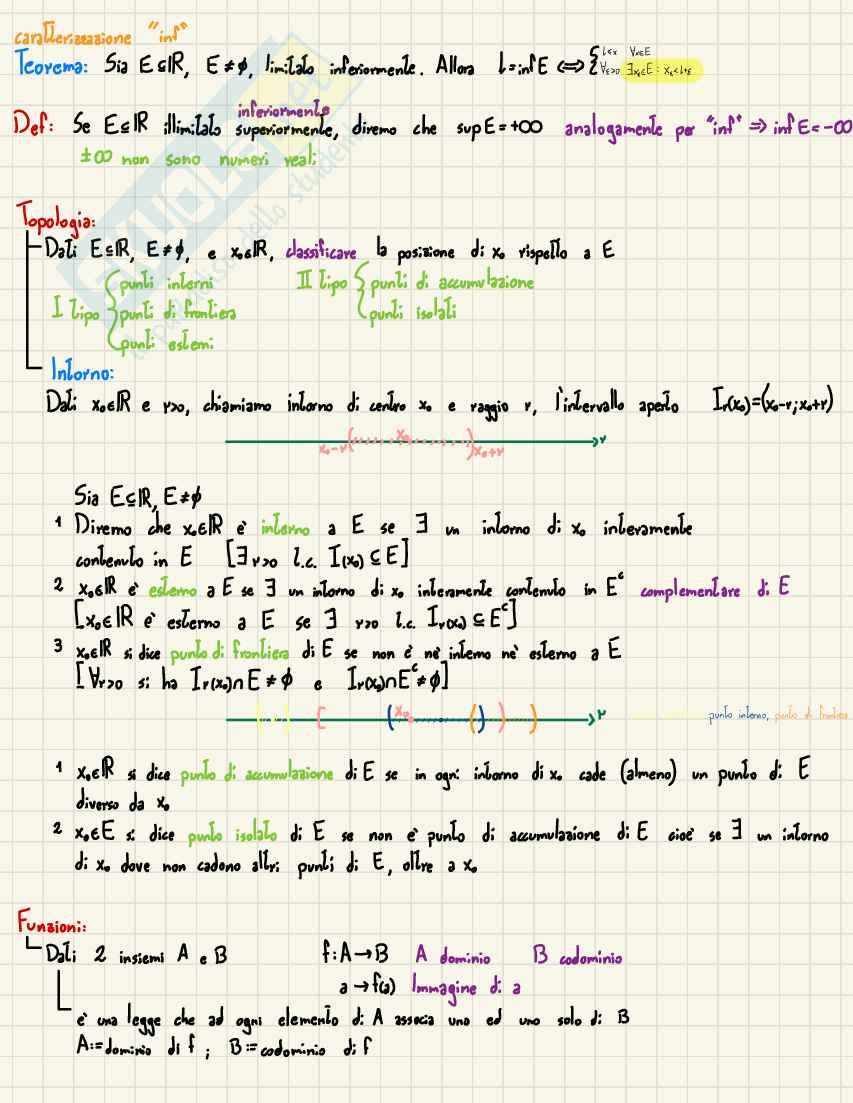 caratterizzazione "inf"
Teorema: Sia E⊆ℝ, E≠ϕ, limitato inferiormente. Allora l=infE ⟺ { l≤x ∀x∈E
∀ε>0 ∃xε∈E : xε<l+ε
inferiormente
Def: Se E⊆ℝ illimitato superiormente, diremo che supE=+∞ analogamente per "inf" ⇒ infE=-∞
±∞ non sono numeri reali
Topologia:
Dati E⊆ℝ, E≠ϕ, e x₀∈ℝ, classificare la posizione di x₀ rispetto a E
I tipo { punti interni
punti di frontiera
punti esterni
II tipo { punti di accumulazione
punti isolati
Intorno:
Dati x₀∈ℝ e r>0, chiamiamo intorno di centro x₀ e raggio r, l'intervallo aperto Ir(x₀)=(x₀-r;x₀+r)
x₀-r ( x₀ ) x₀+r r
Sia E⊆ℝ, E≠ϕ
1 Diremo che x₀∈ℝ è interno a E se ∃ un intorno di x₀ interamente
contenuto in E [∃ r>0 t.c. I(x₀) ⊆ E]
2 x₀∈ℝ è esterno a E se ∃ un intorno di x₀ interamente contenuto in Eᶜ complementare di E
[x₀∈ℝ è esterno a E se ∃ r>0 t.c. Ir(x₀) ⊆ Eᶜ]
3 x₀∈ℝ si dice punto di frontiera di E se non è nè interno nè esterno a E
[∀r>0 si ha Ir(x₀)∩E≠ϕ e Ir(x₀)∩Eᶜ≠ϕ]
x₀ r punto interno, punto di frontiera
1 x₀∈ℝ si dice punto di accumulazione di E se in ogni intorno di x₀ cade (almeno) un punto di E
diverso da x₀
2 x₀∈E si dice punto isolato di E se non è punto di accumulazione di E cioè se ∃ un intorno
di x₀ dove non cadono altri punti di E, oltre a x₀
Funzioni:
Dati 2 insiemi A e B f:A→B A dominio B codominio
a→f(a) Immagine di a
è una legge che ad ogni elemento di A associa uno ed uno solo di B
A:=dominio di f ; B:=codominio di f